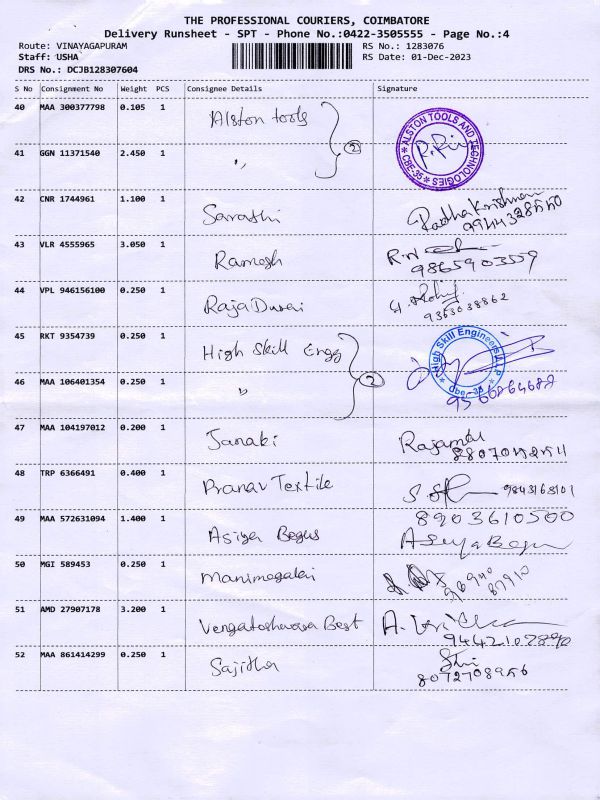 THE PROFESSIONAL COURIERS, COIMBATORE
Delivery Runsheet - SPT - Phone No.:0422-3505555 - Page No.:4
Route: VINAYAGAPURAM RS No.: 1283076
Staff: USHA RS Date: 01-Dec-2023
DRS No.: DCJB128307604
S No Consignment No Weight PCS Consignee Details Signature
40 MAA 300377798 0.105 1 Alston tools
2
ALSTON TOOLS AND TECHNOLOGIES
CBE-35
41 GGN 11371540 2.450 1 "
42 CNR 1744961 1.100 1 Sarathi RadhaKrishnan
43 VLR 4555965 3.050 1 Ramesh
9865903559
44 VPL 946156100 0.250 1 RajaDurai
9363038862
45 RKT 9354739 0.250 1 High Skill Engg
2
High Skill Engineers LLP
Cbe-35
46 MAA 106401354 0.250 1 "
47 MAA 104197012 0.200 1 Janaki
48 TRP 6366491 0.400 1 Pranav Textile 9843168101
49 MAA 572631094 1.400 1 Asiya Begus 8903610500
Asiya Begum
50 MGI 589453 0.250 1 Manimegalai
51 AMD 27907178 3.200 1 Vengateshwara Best
52 MAA 861414299 0.250 1 Sajitha
8072708956